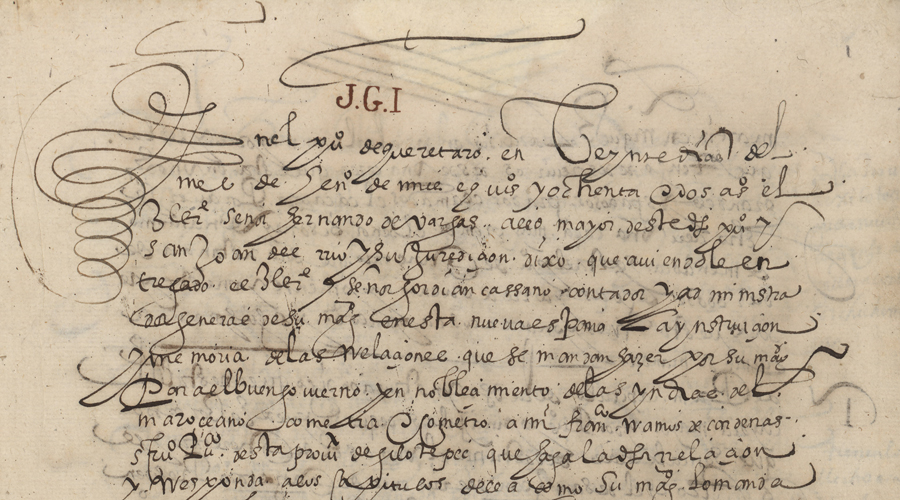 J.G.I
En el pu° de queretaro. en Veynte dias del
mes de hen° de mill e qui°s y ochenta e dos a°s el
Ill^er senor hernando de Vargas. alcd mayor deste dho pu° y
san Joan del rio y su Juredicion. dixo. que aviendole en
tregado. el Ill^er señor gordian cassano contador y administra
dor general de su mag. en esta nueva españa La ynstruicion
y memoria de las Relaciones que se mandan hazer por su mag
Para el buen govierno y en noblecimiento de las yndias del
mar oceano. cometia e cometio a mi fran^co Ramos de cardenas.
desta provi de xilotepec que haga la dha relacion
y Responda a los capitulos della como su mag. lo manda